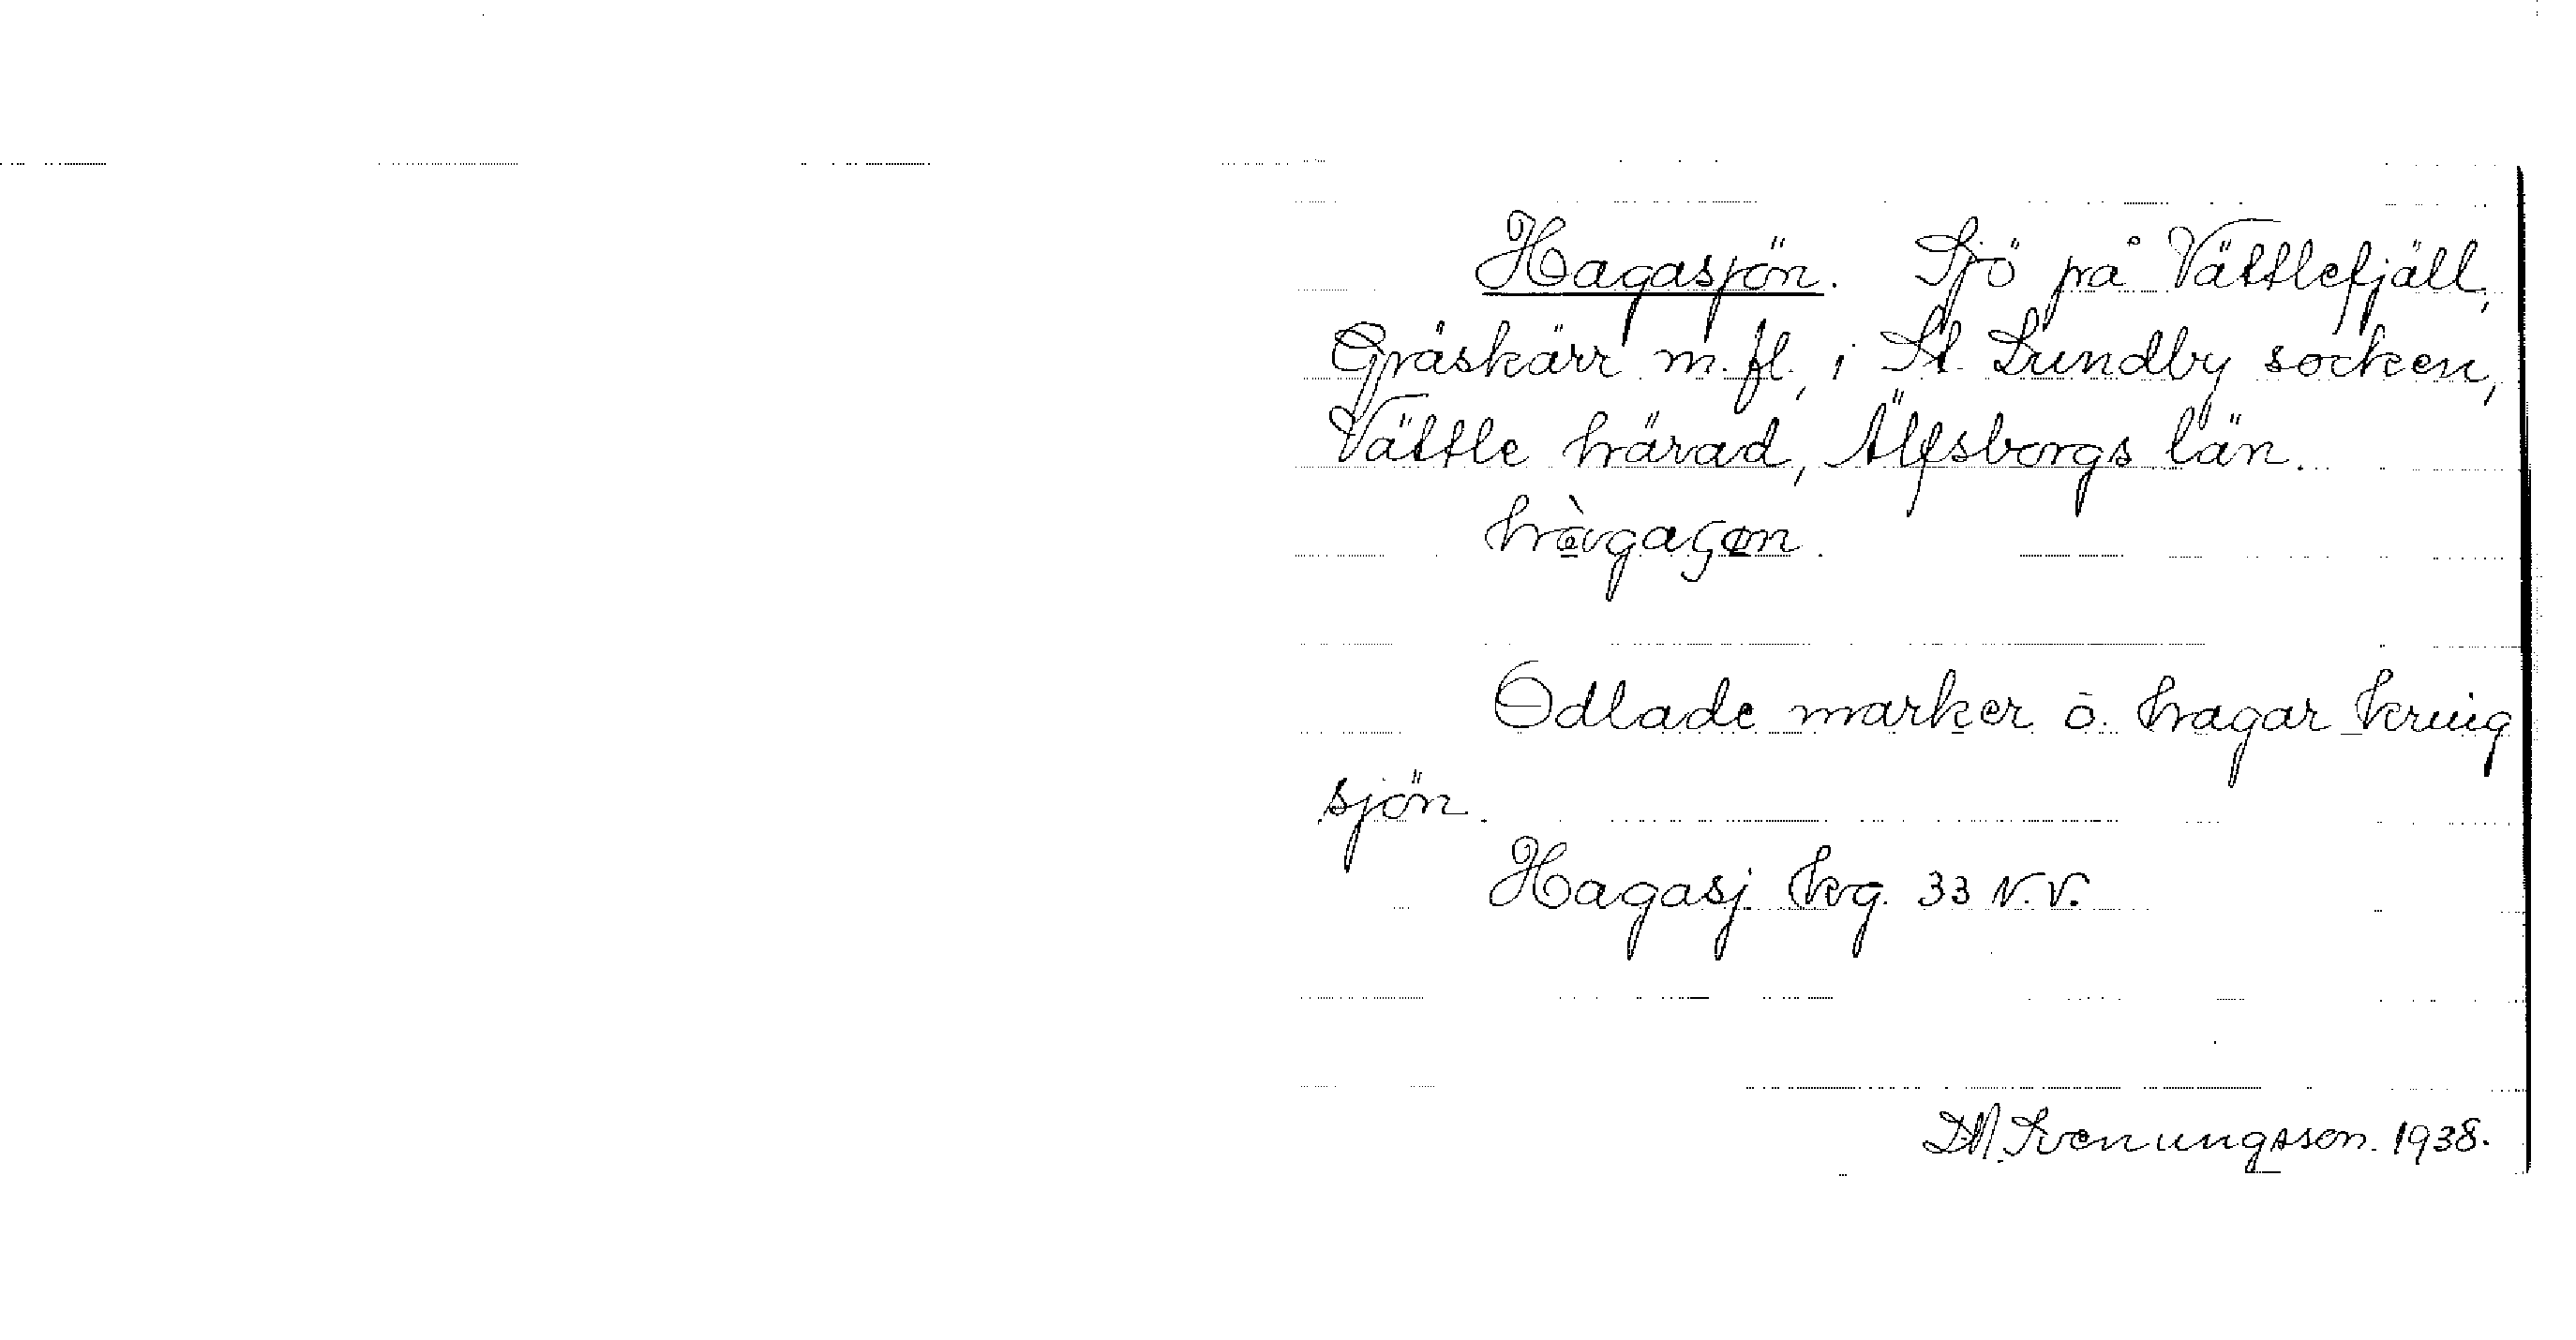 Hagasjön. Sjö på Vättlefjäll,
Gråskärr m.fl., i St. Lundby socken,
Vättle härad, Älfsborgs län.
Odlade marker o. hagar kring
sjön.
Hagasj. kvg. 33 N.V.
D.A. Svenungsson. 1938.